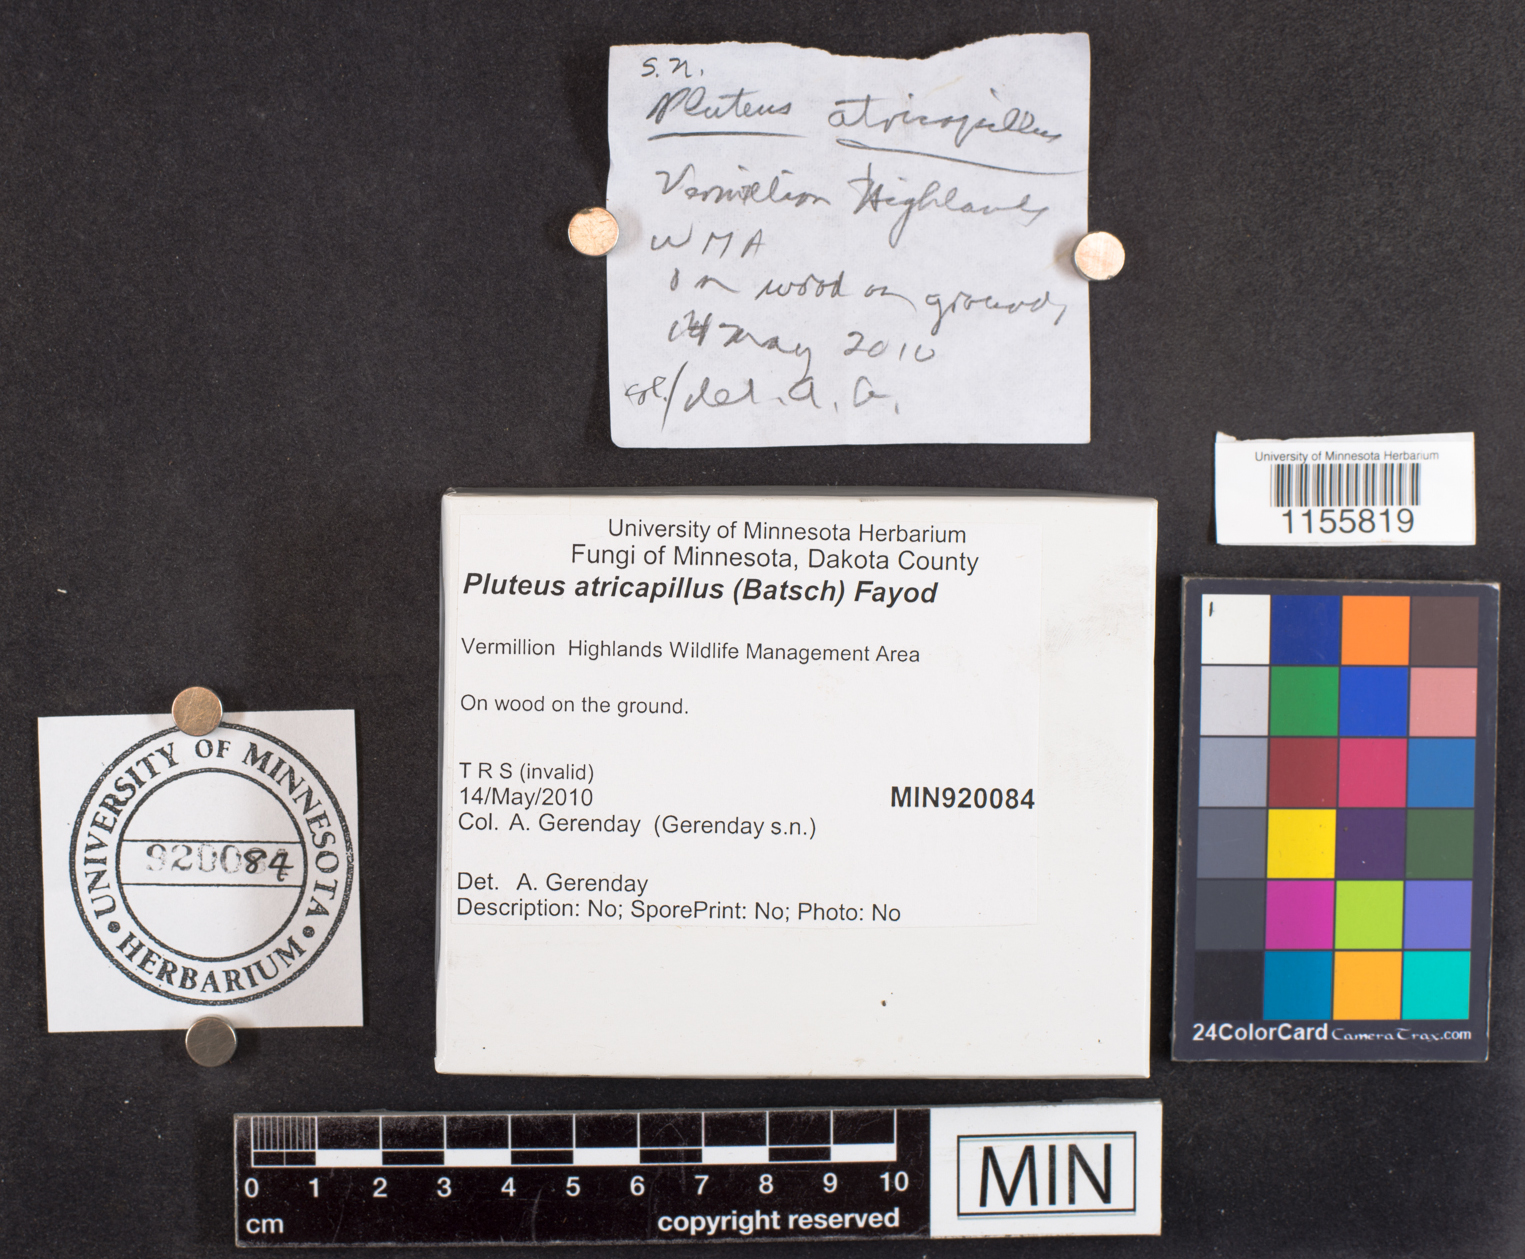 s.n.
Pluteus atricapillus
Vermillion Highlands
WMA
On wood on ground,
14 May 2010
col./det. A. G.
University of Minnesota Herbarium
1155819
University of Minnesota Herbarium
Fungi of Minnesota, Dakota County
Pluteus atricapillus (Batsch) Fayod
Vermillion Highlands Wildlife Management Area
On wood on the ground.
T R S (invalid)
14/May/2010
MIN920084
Col. A. Gerenday (Gerenday s.n.)
Det. A. Gerenday
Description: No; SporePrint: No; Photo: No
UNIVERSITY OF MINNESOTA
920084
HERBARIUM
24ColorCard CameraTrax.com
0 1 2 3 4 5 6 7 8 9 10
cm
copyright reserved
MIN